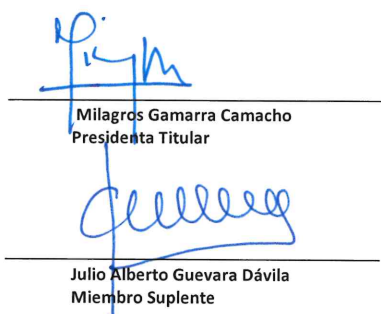 Milagros Gamarra Camacho
Presidenta Titular
Julio Alberto Guevara Dávila
Miembro Suplente